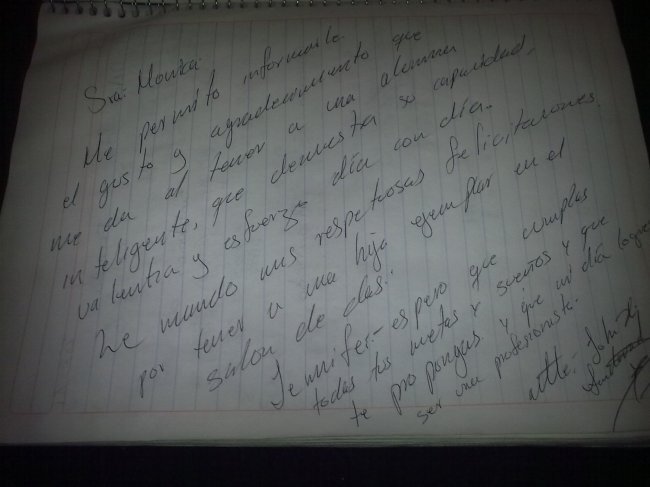 Sra: Monica.
Me permito informarle
el gusto y agradecimiento que
me da al tener a una alumna
inteligente, que demuestra su capacidad,
valentia y esfuerzo día con día.
Le mando mis respetuosas felicitaciones
por tener a una hija ejemplar en el
salon de clas.
Jennifer.- espero que cumplas
todas tus metas y sueños y que
te propongas y que un día logres
ser una profesionista.
atte. John